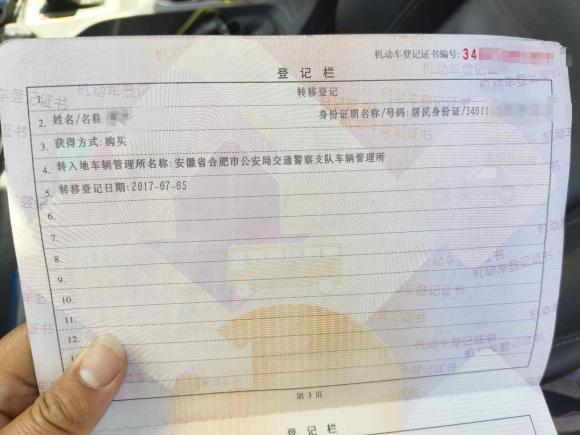 机动车登记证书编号: 34
登记栏
1. 转移登记
2. 姓名/名称 身份证明名称/号码: 居民身份证/34011
3. 获得方式: 购买
4. 转入地车辆管理所名称: 安徽省合肥市公安局交通警察支队车辆管理所
5. 转移登记日期: 2017-07-05
6.
7.
8.
9.
10.
11.
12.
第 3 页
登记栏